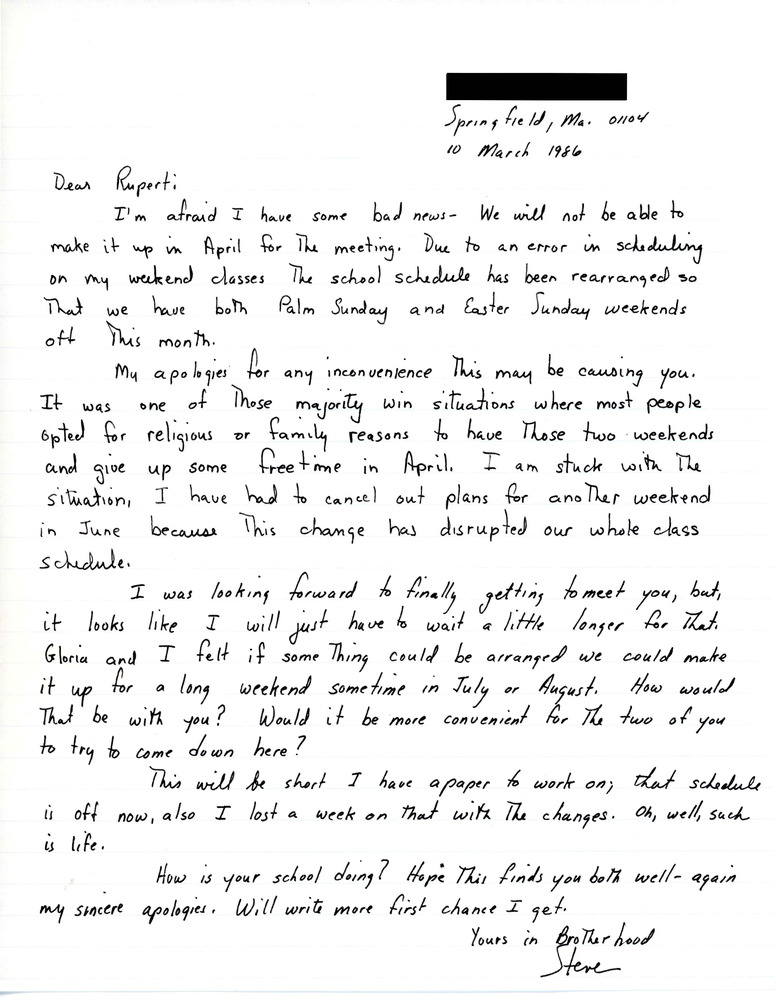 Springfield, Ma. 01104
10 March 1986
Dear Rupert:
I'm afraid I have some bad news- We will not be able to
make it up in April for The meeting. Due to an error in scheduling
on my weekend classes The school schedule has been rearranged so
That we have both Palm Sunday and Easter Sunday weekends
off This month.
My apologies for any inconvenience This may be causing you.
It was one of Those majority win situations where most people
opted for religious or family reasons to have Those two weekends
and give up some free time in April. I am stuck with The
situation, I have had to cancel out plans for anoTher weekend
in June because This change has disrupted our whole class
schedule.
I was looking forward to finally getting to meet you, but,
it looks like I will just have to wait a little longer for That.
Gloria and I felt if some Thing could be arranged we could make
it up for a long weekend sometime in July or August. How would
That be with you? Would it be more convenient for The two of you
to try to come down here?
This will be short I have a paper to work on; that schedule
is off now, also I lost a week on That with The changes. Oh, well, such
is life.
How is your school doing? Hope This finds you both well- again
my sincere apologies. Will write more first chance I get.
Yours in BroTherhood
Steve